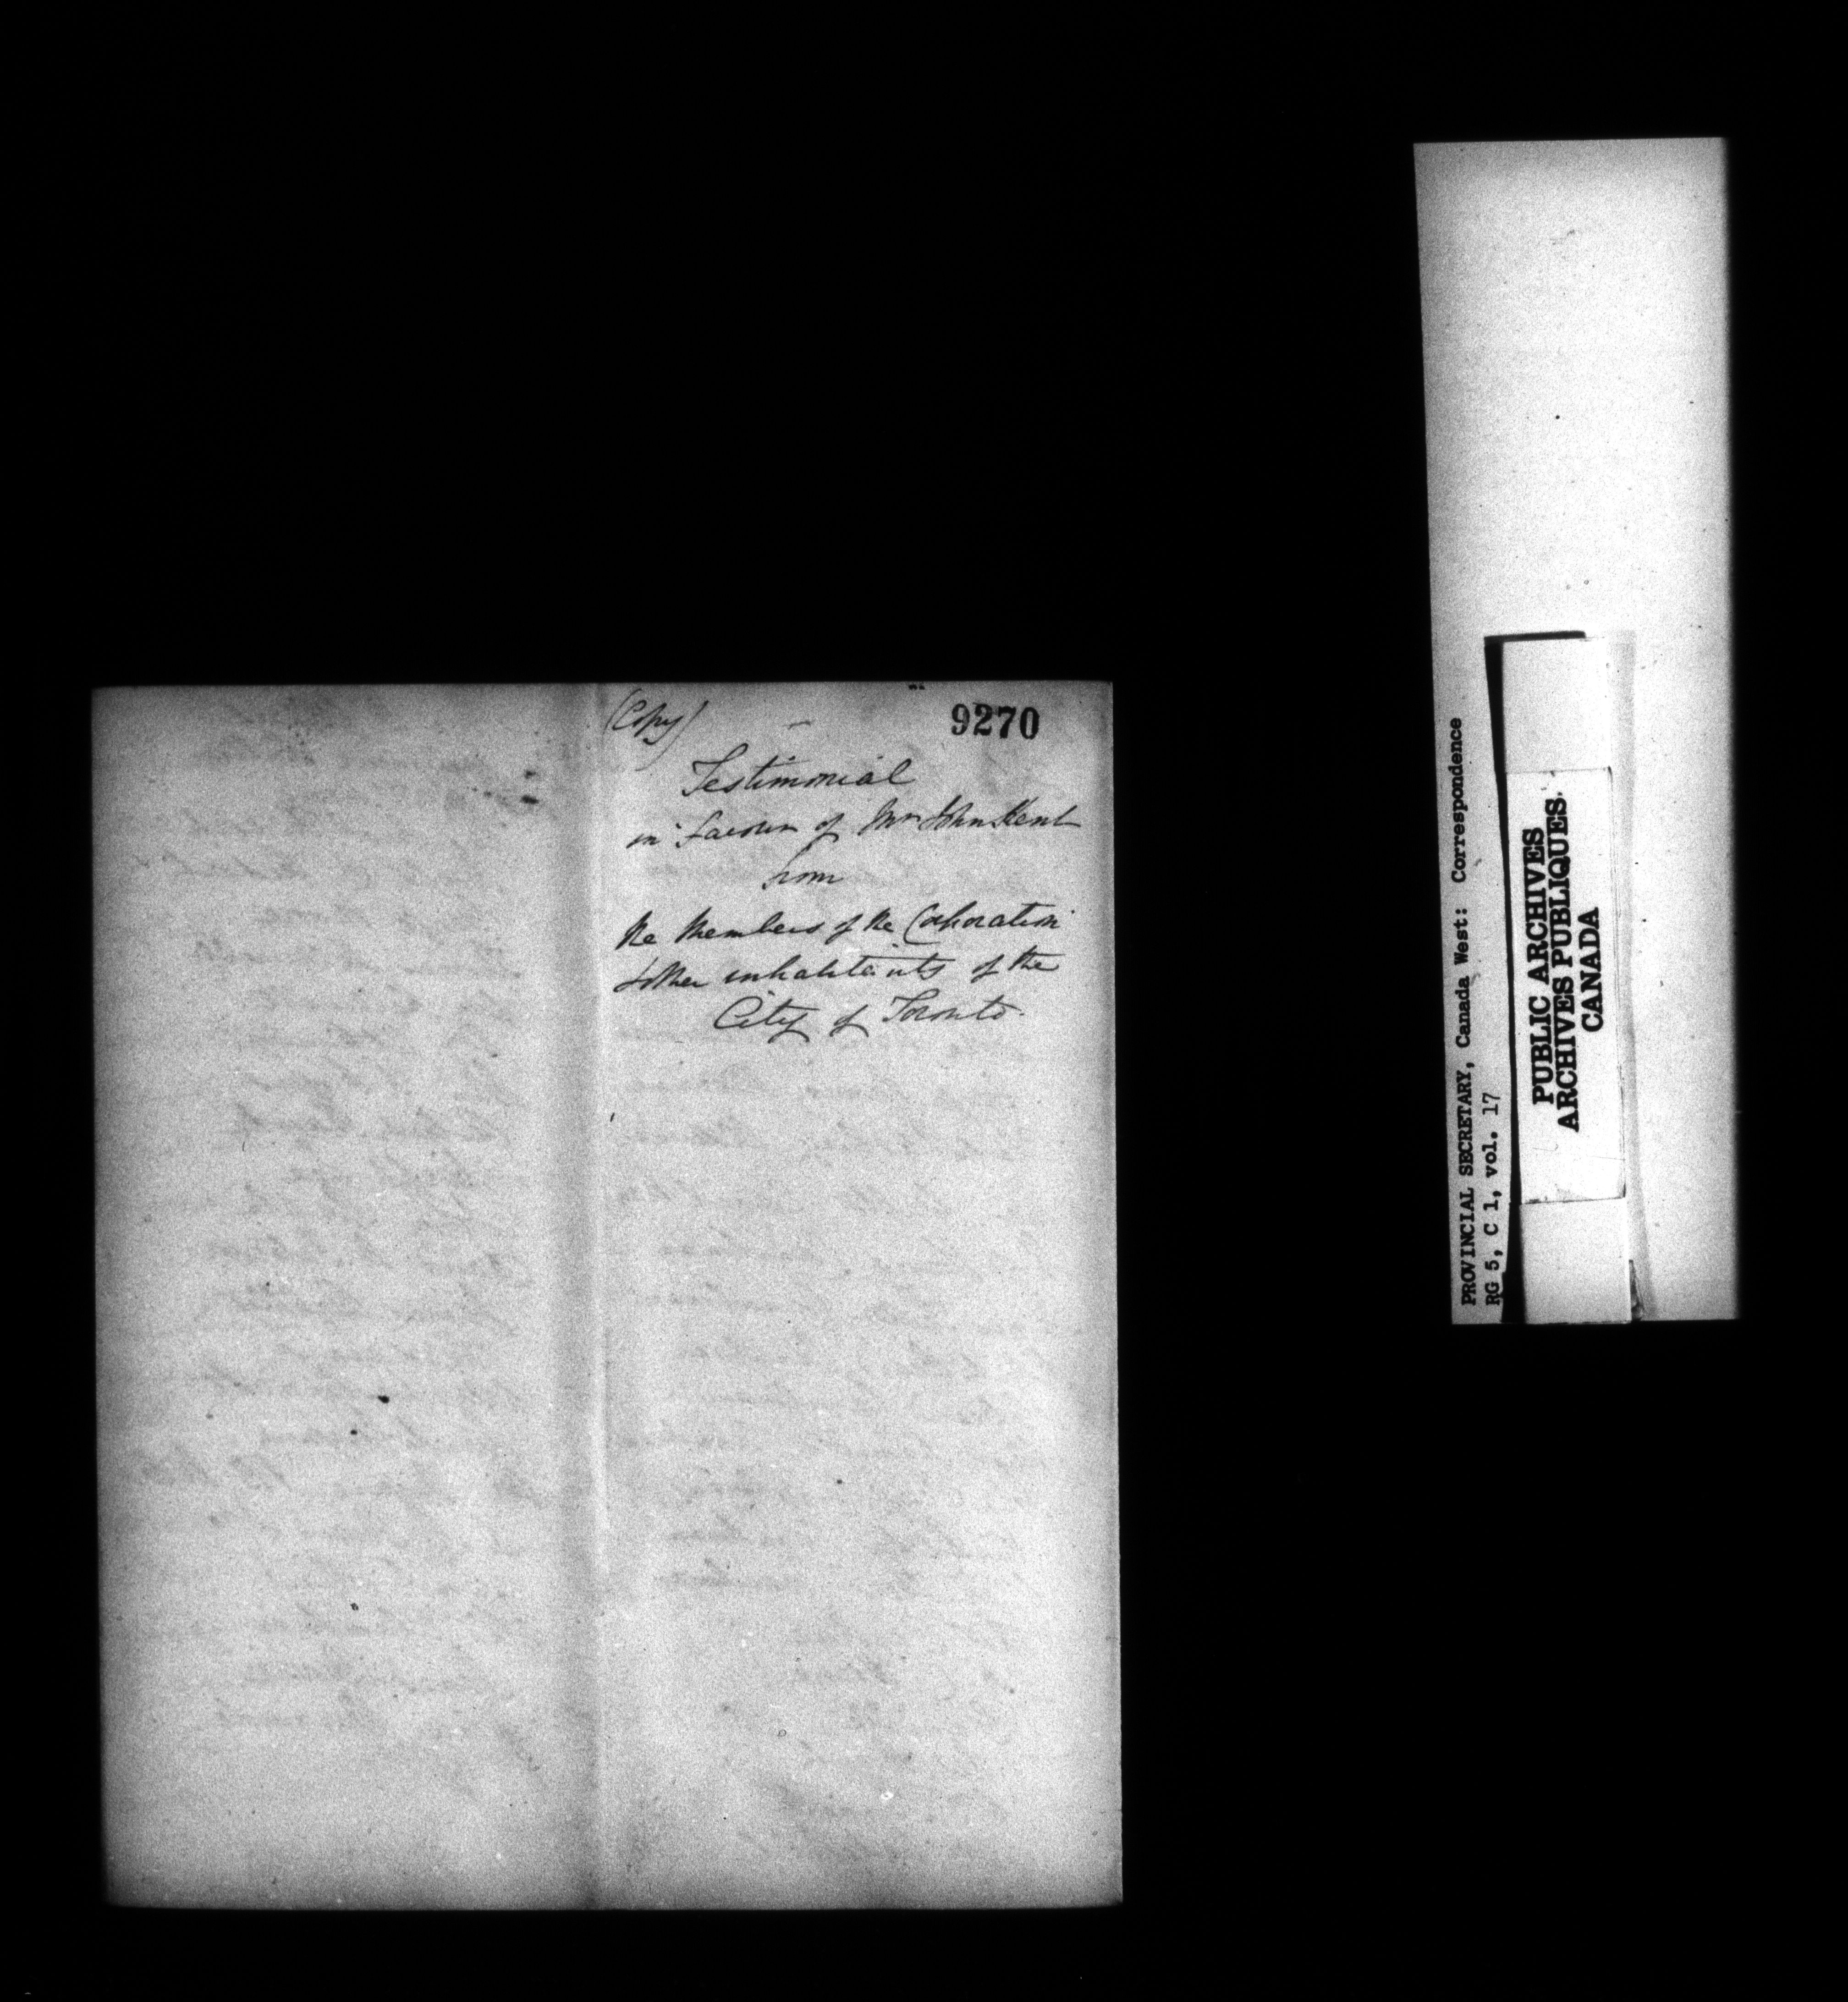 (Copy)
9270
Testimonial
in favour of Mr John Kent
from
the Members of the Corporation
& other inhabitants of the
City of Toronto.
PROVINCIAL SECRETARY, Canada West: Correspondence
RG 5, C 1, vol. 17
PUBLIC ARCHIVES
ARCHIVES PUBLIQUES
CANADA